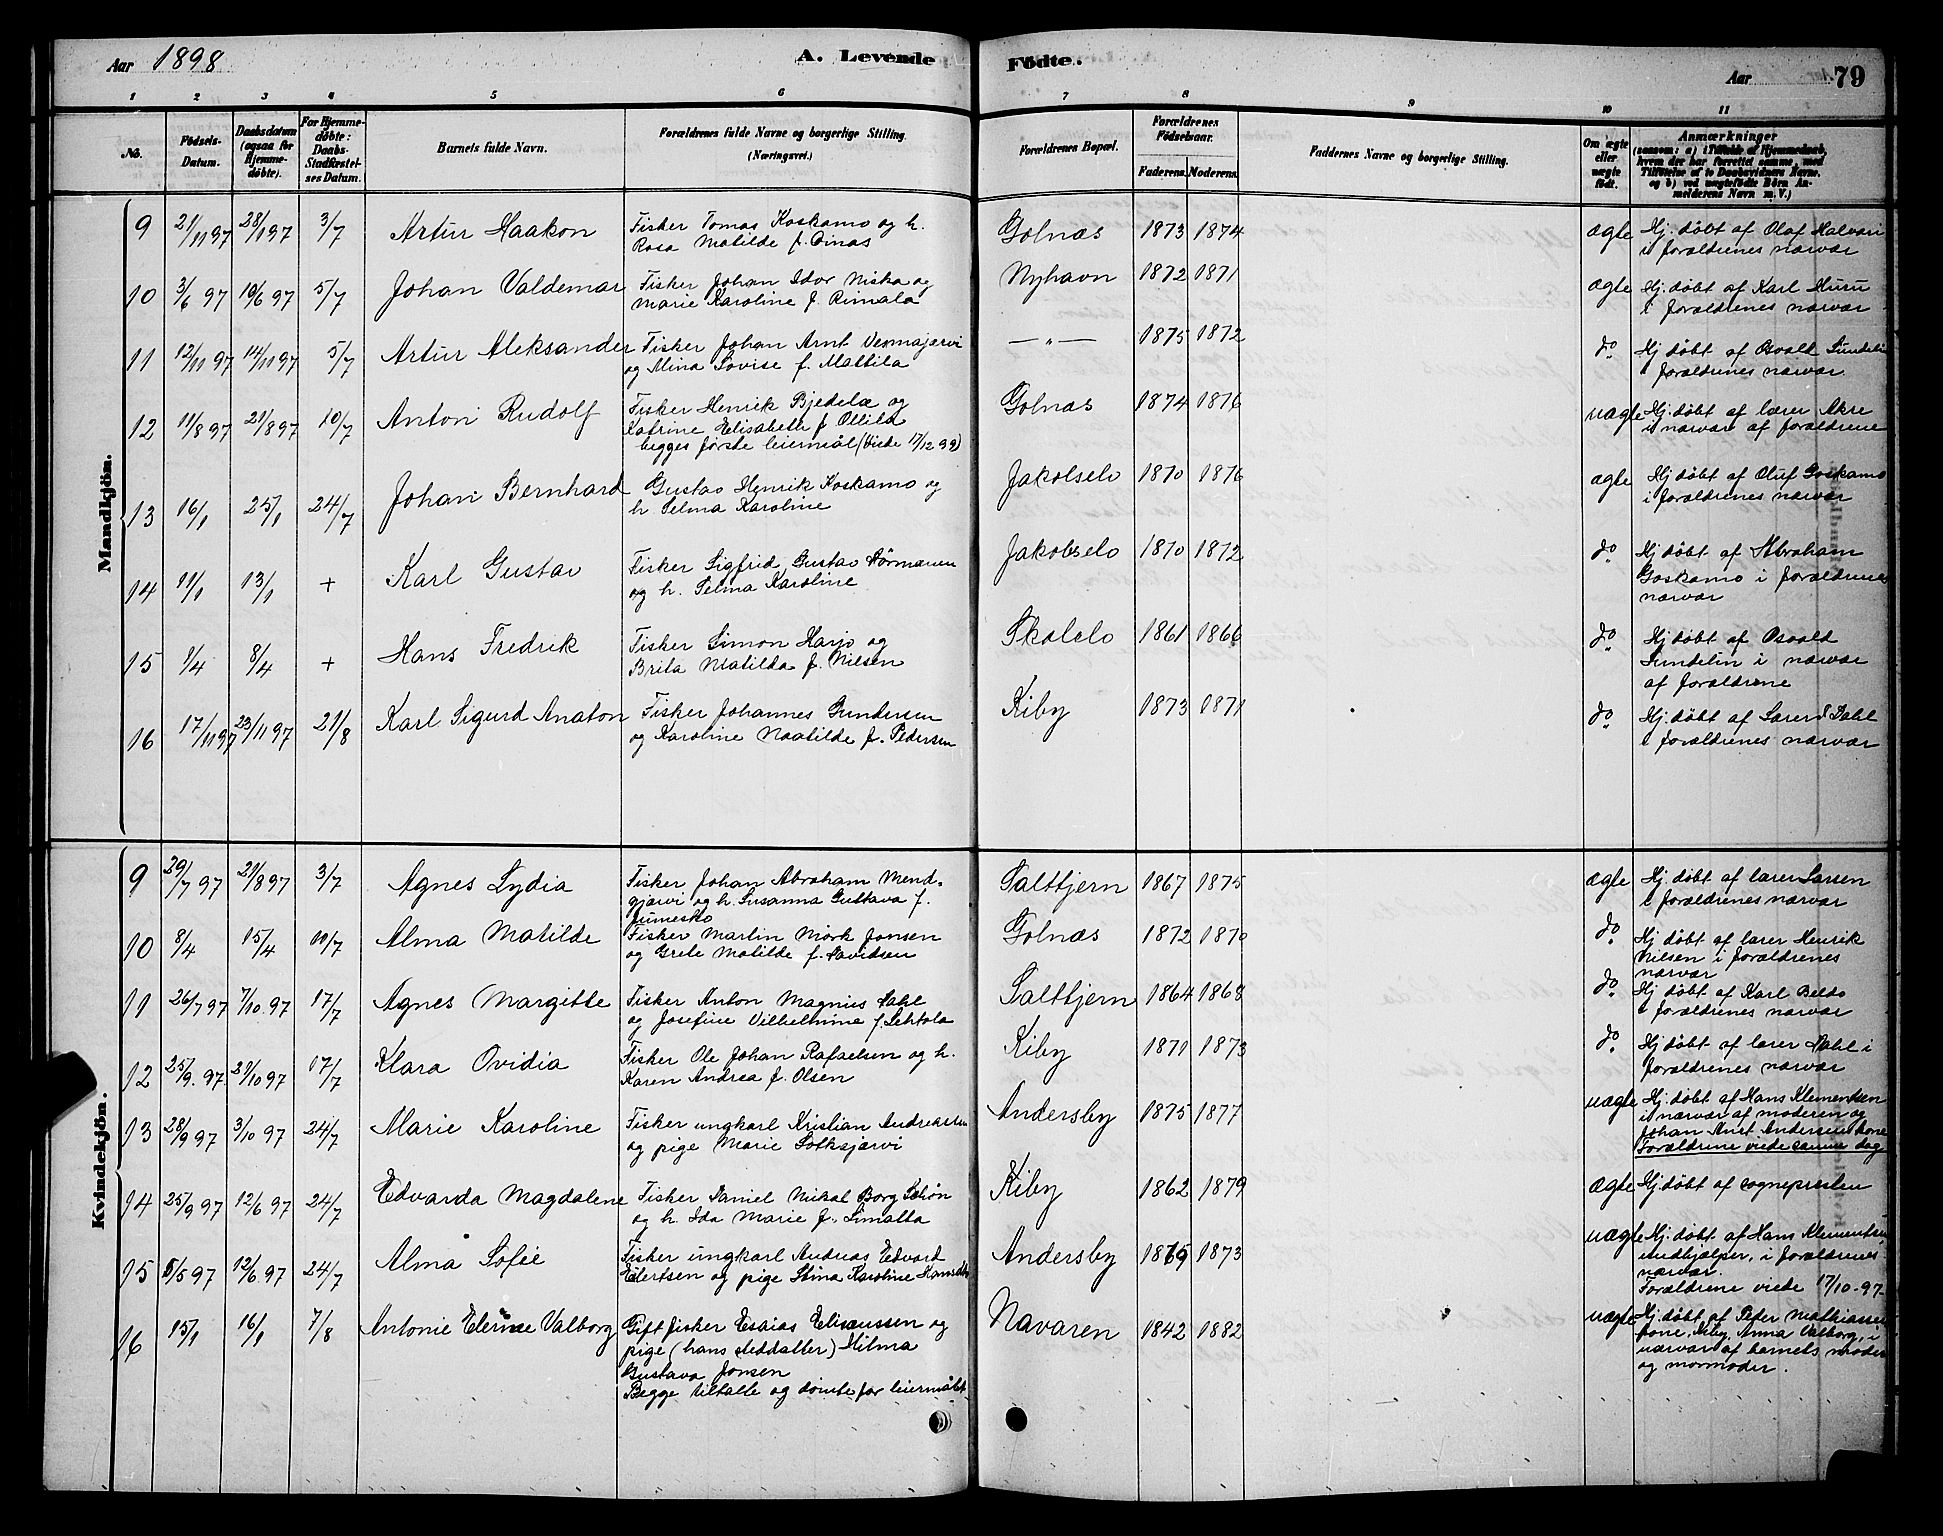 Aar 1898 A. Levende Födte. Aar 79
1 2 3 4 5 6 7 8 9 10 11
No. Födsels-Datum. Daabsdatum (ogsaa for Hjemme-döbte). For Hjemme-döbte: Daabs-Stadfæstel-ses Datum. Barnets fulde Navn. Forældrenes fulde Navne og borgerlige Stilling. (Næringsvei.) Forældrenes Bopæl. Forældrenes Födselsaar. Faderens. Moderens. Faddernes Navne og borgerlige Stilling. Om ægte eller uægte födt. Anmærkninger (saasom: a) i Tilfælde af Hjemmedaab, hvem der har forrettet samme, med Tilföielse af to Daabsvidners Navne. og b) ved uægtefödte Börn An-melderens Navn m. V.)
Mandkjön.
9 21/11 97 28/11 97 3/7 Artur Haakon Fisker Tomas Koskamo og h. Golnæs 1873 1874 ægte Hj. döbt af Olaf Halvari
Rosa Matilde f. Oinas i forældrenes nærvær
10 3/6 97 10/6 97 5/7 Johan Valdemar Fisker Johan Idor Niska og Nyhavn 1872 1871 ægte Hj. döbt af Karl Huru
Marie Karoline f. Rimala i forældrenes nærvær
11 12/11 97 14/11 97 5/7 Artur Aleksander Fisker Johan Arnt Venmajærvi —„— 1875 1872 do Hj döbt af Osvalt Sundelin
og Mina Lovise f. Mattila i forældrenes nærvær.
12 11/8 97 21/8 97 10/7 Anton Rudolf Fisker Henrik Bjedela og Golnæs 1874 1876 uægte Hj. döbt af lærer Akre
Katrine Elisabeth f Ollila i nærvær af forældrene
begges förste leiermål (Viede 17/12 99)
13 16/1 25/1 24/7 Johan Bernhard Gustav Henrik Koskamo og Jakobselv 1870 1876 ægte Hj döbt af Oluf Goskamo
h Selma Karoline i forældrenes nærvær
14 11/1 13/1 + Karl Gustav Fisker Sigfrid Gustav Körmænen Jakobselv 1870 1872 do Hj döbt af Abraham
og h. Selma Karoline Goskamo i forældrenes
nærvær
15 1/4 8/4 + Hans Fredrik Fisker Simon Harjo og Skalelv 1861 1866 do Hj döbt af Osvald
Brita Matilda f. Nilsen Sundelin i nærvær
af forældrene
16 17/11 97 23/11 97 21/8 Karl Sigurd Anaton Fisker Johannes Gundersen Kiby 1873 1871 do Hj. döbt af Lærer Dahl
og Karoline Maatilde f. Pedersen i forældrenes nærvær
Kvindekjön.
9 29/7 97 21/8 97 3/7 Agnes Lydia Fisker Johan Abraham Mend- Saltbjern 1867 1875 ægte Hj. döbt af lærer Larsen
gjærvi og h. Susanna Gustava f. i forældrenes nærvær
Jumesko
10 8/4 15/4 10/7 Alma Matilde Fisker Martin Mörk Jonsen Golnæs 1872 1870 do Hj döbt af lærer Henrik
og Grete Matilde f. Davidsen Nilsen i forældrenes
nærvær
11 26/7 97 7/10. 97 17/7 Agnes Margitte Fisker Anton Magnus Dahl Saltbjern 1864 1868 do Hj döbt af Karl Beldo
og Josefine Vilhelmine f. Lehtola i forældrenes nærvær
12 25/9. 97. 29/10 97 17/7 Klara Ovidia Fisker Ole Johan Rafaelsen og h. Kiby 1871 1873 do Hj döbt af lærer Dahl i
Karen Andrea f. Olsen forældrenes nærvær
13 28/9 97 3/10 97 24/7 Marie Karoline Fisker ungkarl Kristian Andreassen Andersby 1875 1877 uægte Hj. döbt af Hans Klementsen
og pige Marie Sotksjærvi i nærvær af moderen og
Johan Arnt Andersens kone
Forældrene viede samme dag
14 25/9 97 12/6 97 24/7 Edvarda Magdalene Fisker Daniel Nikal Borg Schön Kiby 1862 1879 ægte Hj. döbt af sognepresten
og h. Ida Marie f. Simalta
15 5/5 97 12/6. 97 24/7 Alma Sofie Fisker ungkarl Andreas Edvard Andersby 1869 1873 uægte Hj. döbt af Hans Klementsen
Eilertsen og pige Stina Karoline i forældrenes
nærvær.
Forældrene viede 17/10-97.
16 15/1 16/1 7/8 Antonie Elerine Valborg Gift fisker Esaias Elisæussen og Navaren 1842 1882 uægte Hj. döbt af Peter Mathiassens
pige (hans steddatter) Hilma kone, Kiby, Anna Valborg, i
Gustava Jonsen nærvær af barnets moder
Begge tiltalte og dömte for leiermålet. og mormoder.